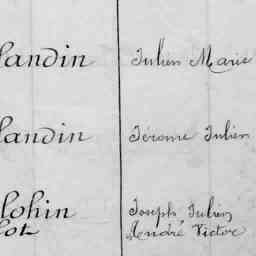 landin Julien Marie
landin Jérome Julien
lohin Joseph Julien
lot André Victor